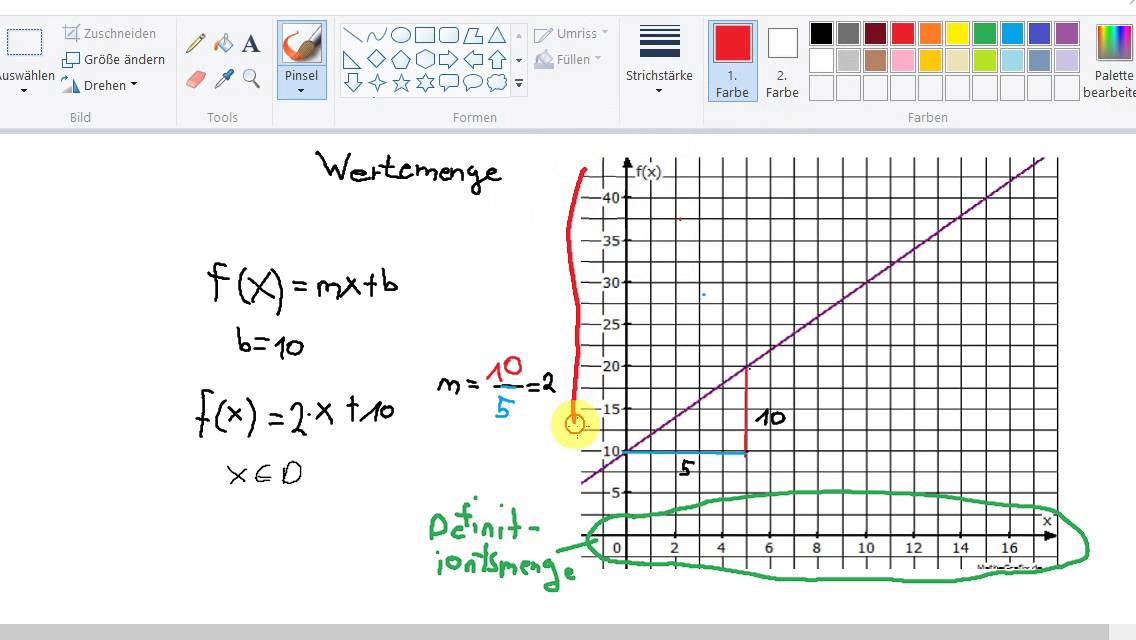 Zuschneiden
Größe ändern
Drehen
uswählen
Bild
Tools
Pinsel
Formen
Umriss
Füllen
Strichstärke
1.
Farbe
2.
Farbe
Palette
bearbeite
Farben
Wertemenge
f(x)
40
35
30
25
20
15
10
5
f(x) = mx+b
b=10
m = 10/5 = 2
f(x) = 2·x +10
x ∈ D
10
5
Definit-
iontsmenge
x
0 2 4 6 8 10 12 14 16